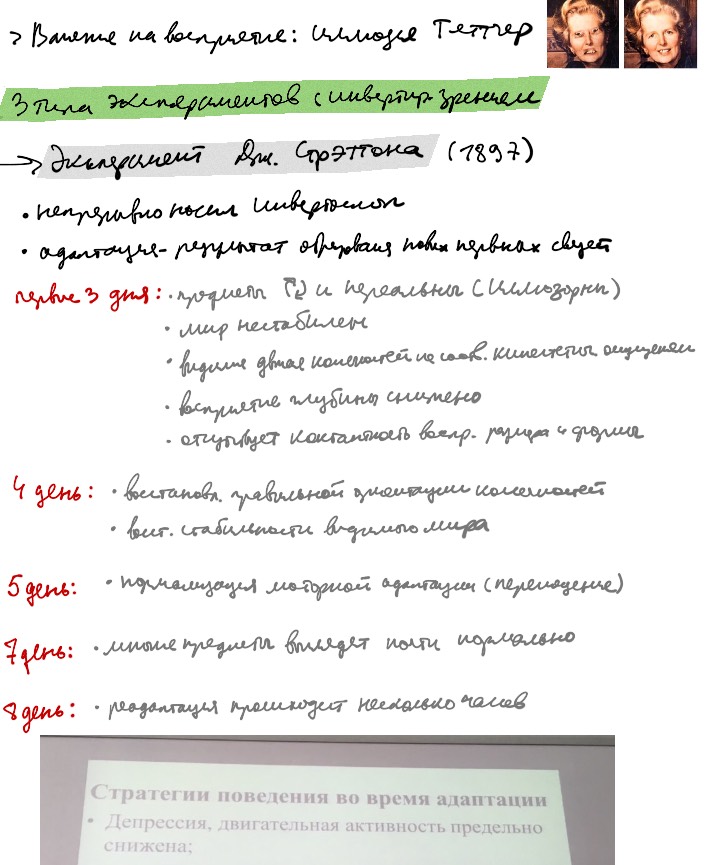 > Влияние на восприятие: иллюзия Тетчер
3 типа экспериментов с инвертир. зрением
→ Эксперимент Дж. Стрэттона (1897)
• непрерывно носил инвертоскоп
• адаптация - результат образования новых нервных связей
первые 3 дня: • предметы и нереальны (иллюзорны)
• мир нестабилен
• видимые движения конечностей не соотв. кинестетич. ощущениям
• восприятие глубины снижено
• отсутствует константность воспр. размера и формы
4 день: • восстановл. правильной ориентации конечностей
• восст. стабильности видимого мира
5 день: • нормализация моторной адаптации (перемещение)
7 день: • многие предметы выглядят почти нормально
8 день: • реадаптация происходит несколько часов
Стратегии поведения во время адаптации
• Депрессия, двигательная активность предельно
снижена;